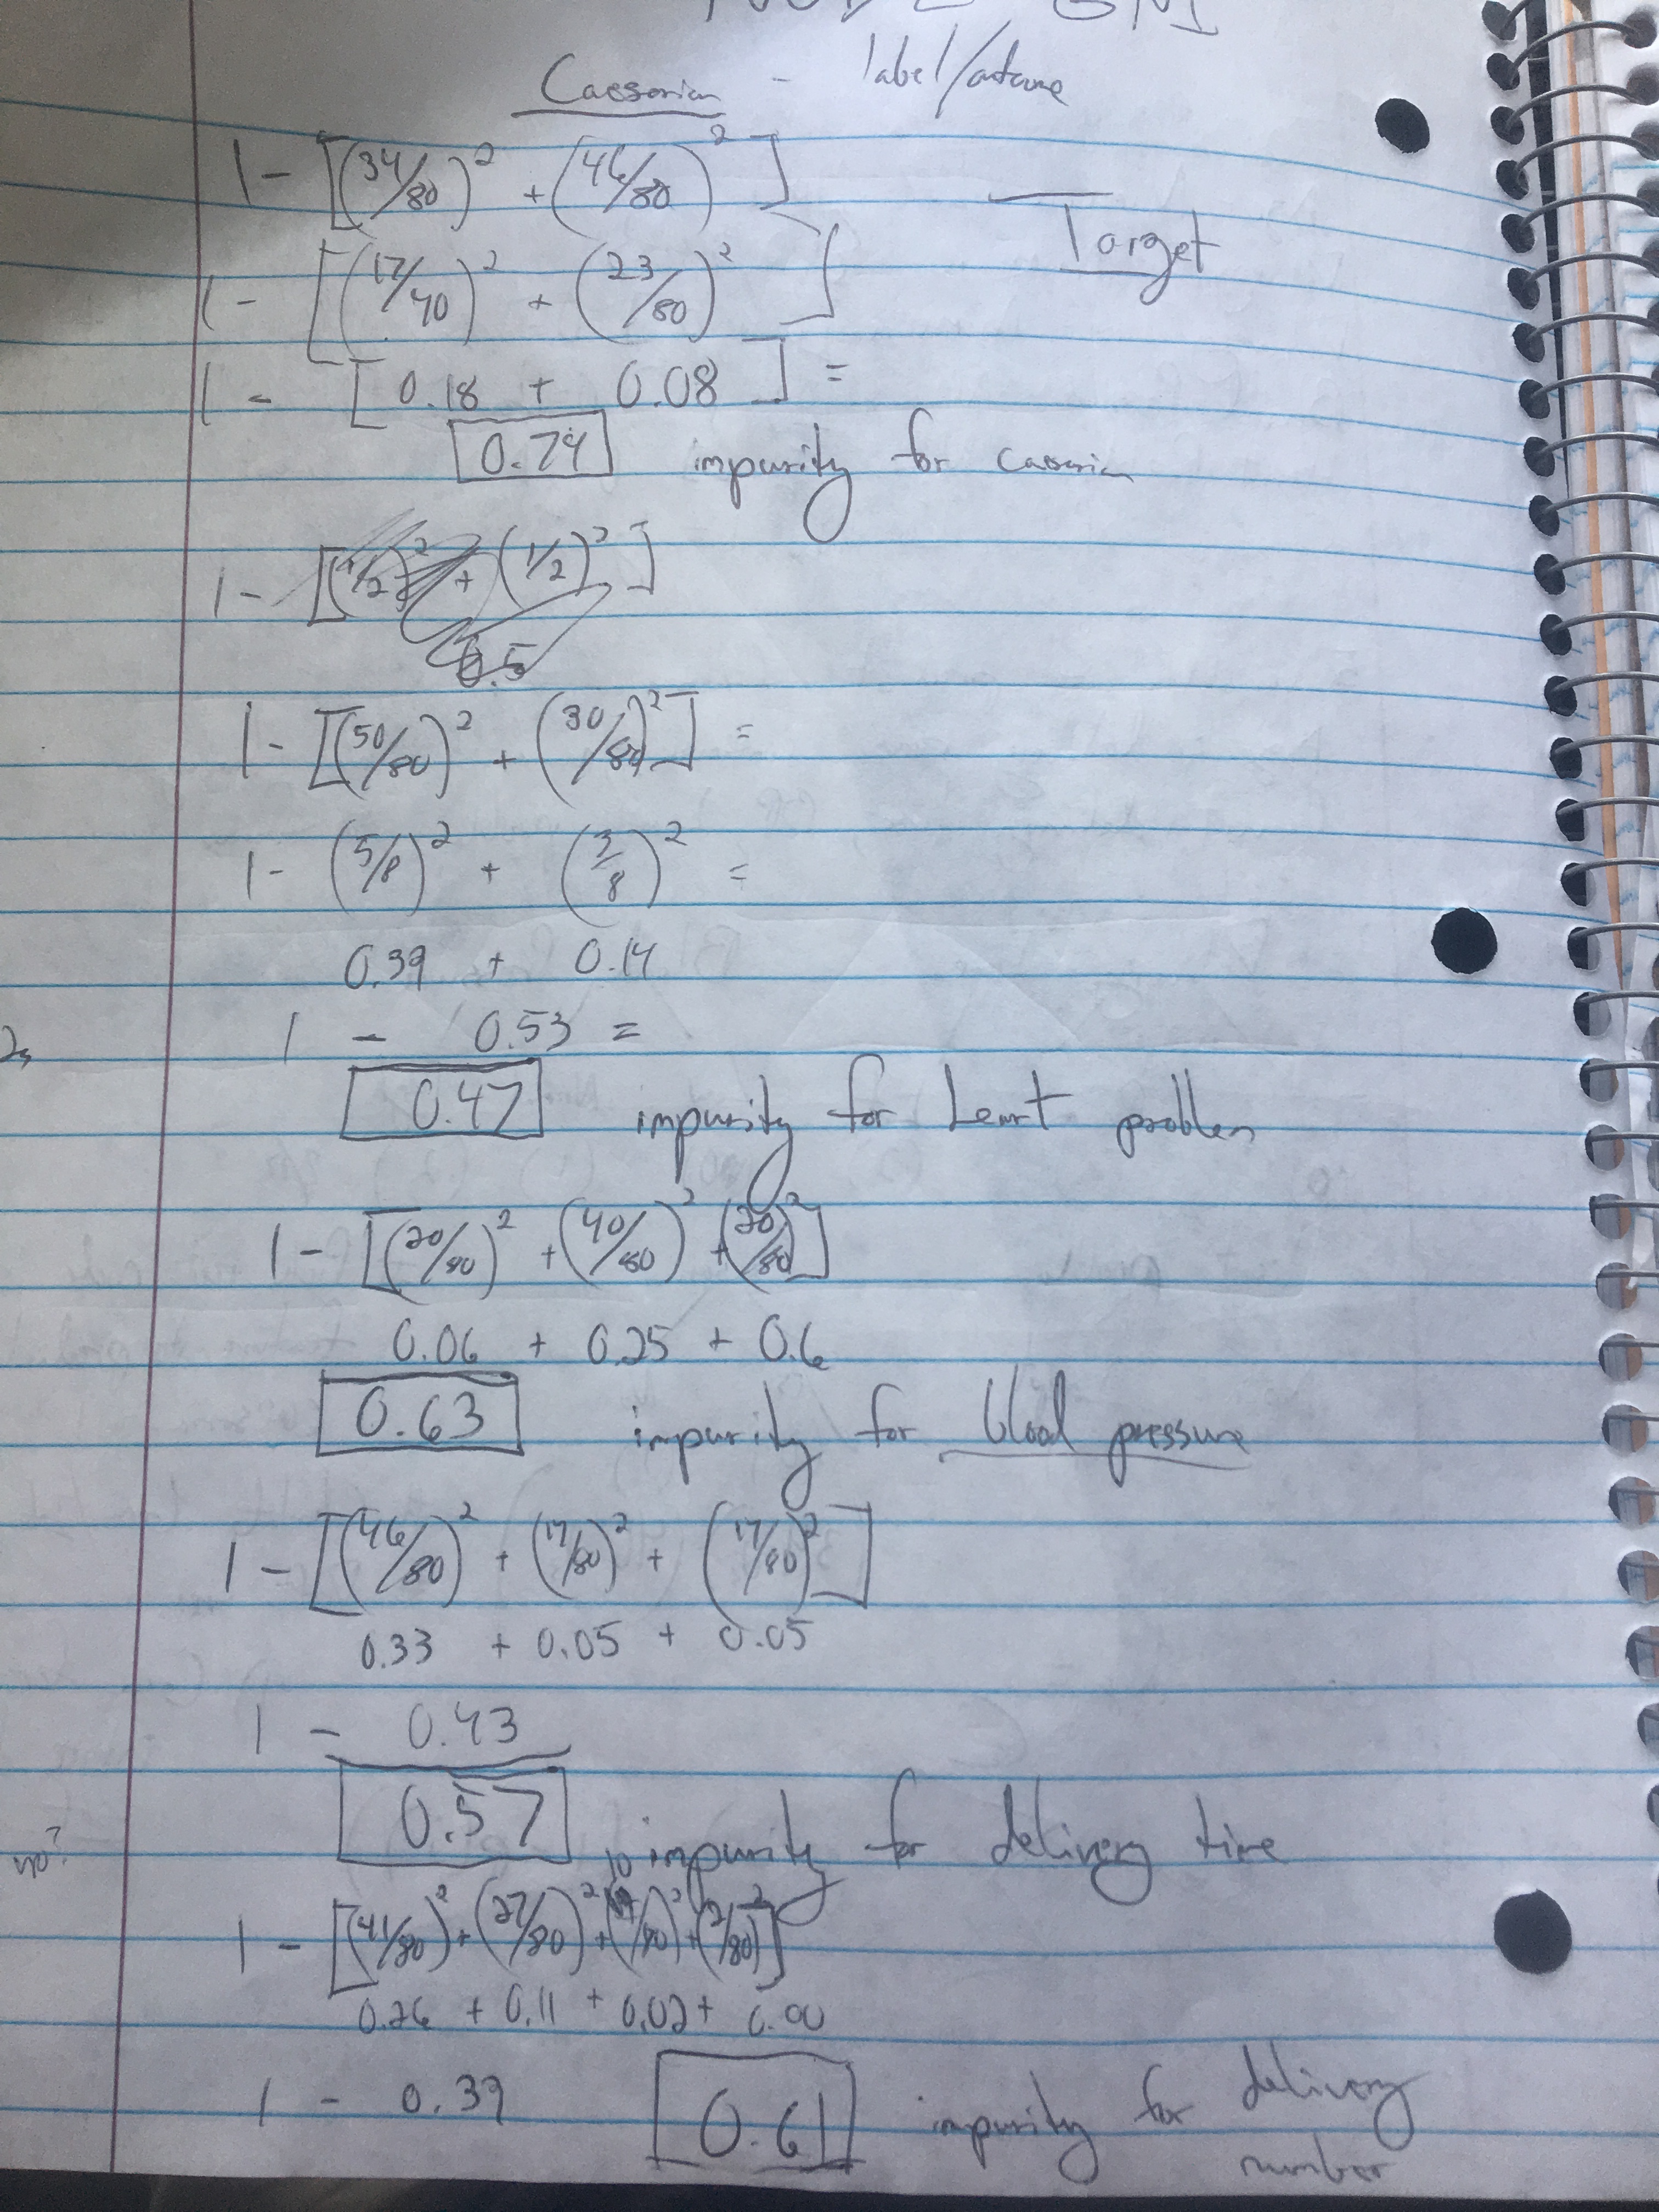 Caessarian - label/outcome
1 - [(34/80)² + (46/80)²]
Target
1 - [(17/40)² + (23/80)²]
1 - [0.18 + 0.08] =
0.74 impurity for caesarian
1 - [(1/2)² + (1/2)²]
0.5
1 - [(50/80)² + (30/80)²] =
1 - (5/8)² + (3/8)² =
0.39 + 0.14
1 - 0.53 =
0.47 impurity for heart problem
1 - [(20/80)² + (40/80)² + (20/80)²]
0.06 + 0.25 + 0.6
0.63 impurity for blood pressure
1 - [(46/80)² + (17/80)² + (17/80)²]
0.33 + 0.05 + 0.05
1 - 0.43
0.57 impurity for delivery time
no?
1 - [(41/80)² + (27/80)² + (10/80)² + (2/80)²]
0.26 + 0.11 + 0.02 + 0.00
1 - 0.39 0.61 impurity for delivery
number